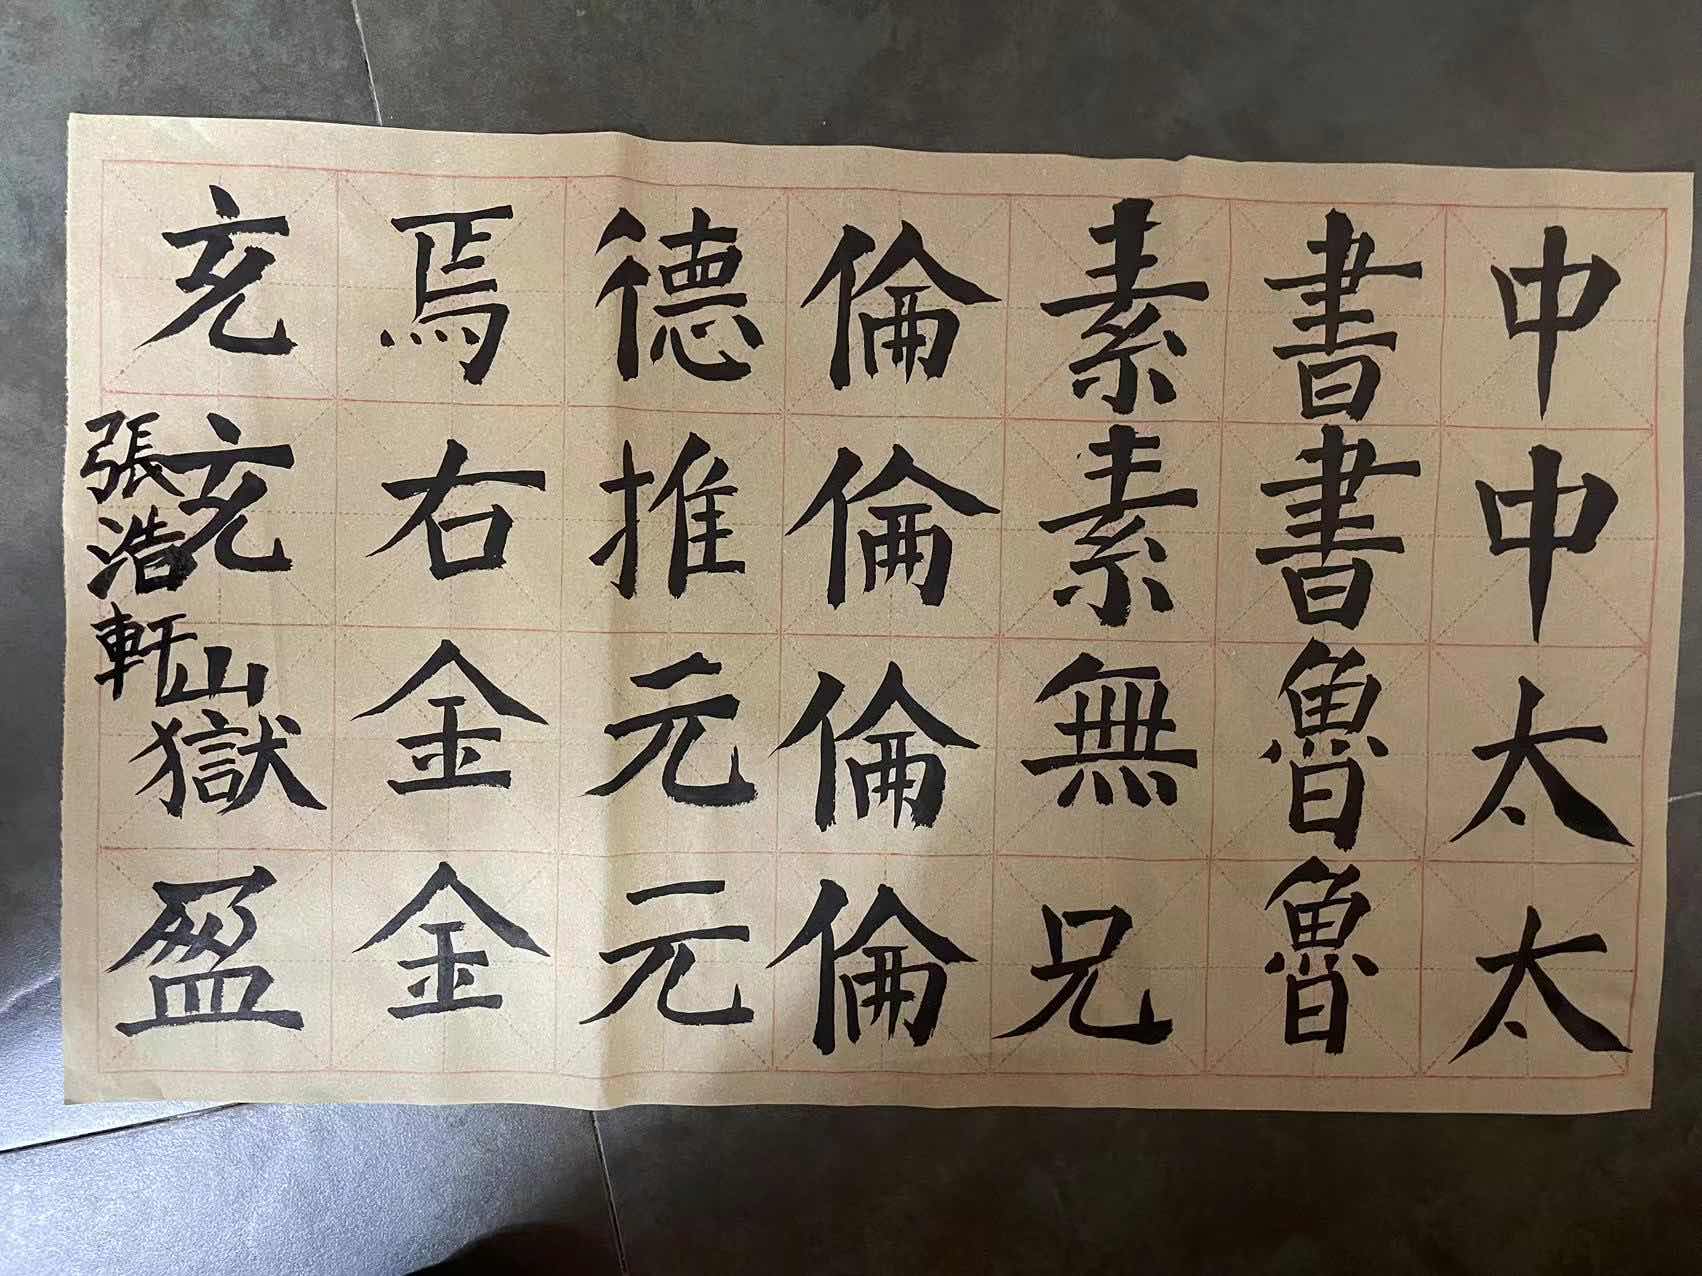 中中太太
書書魯魯
素素無兄
倫倫倫倫
德推元元
焉右金金
充充嶽盈
張浩軒